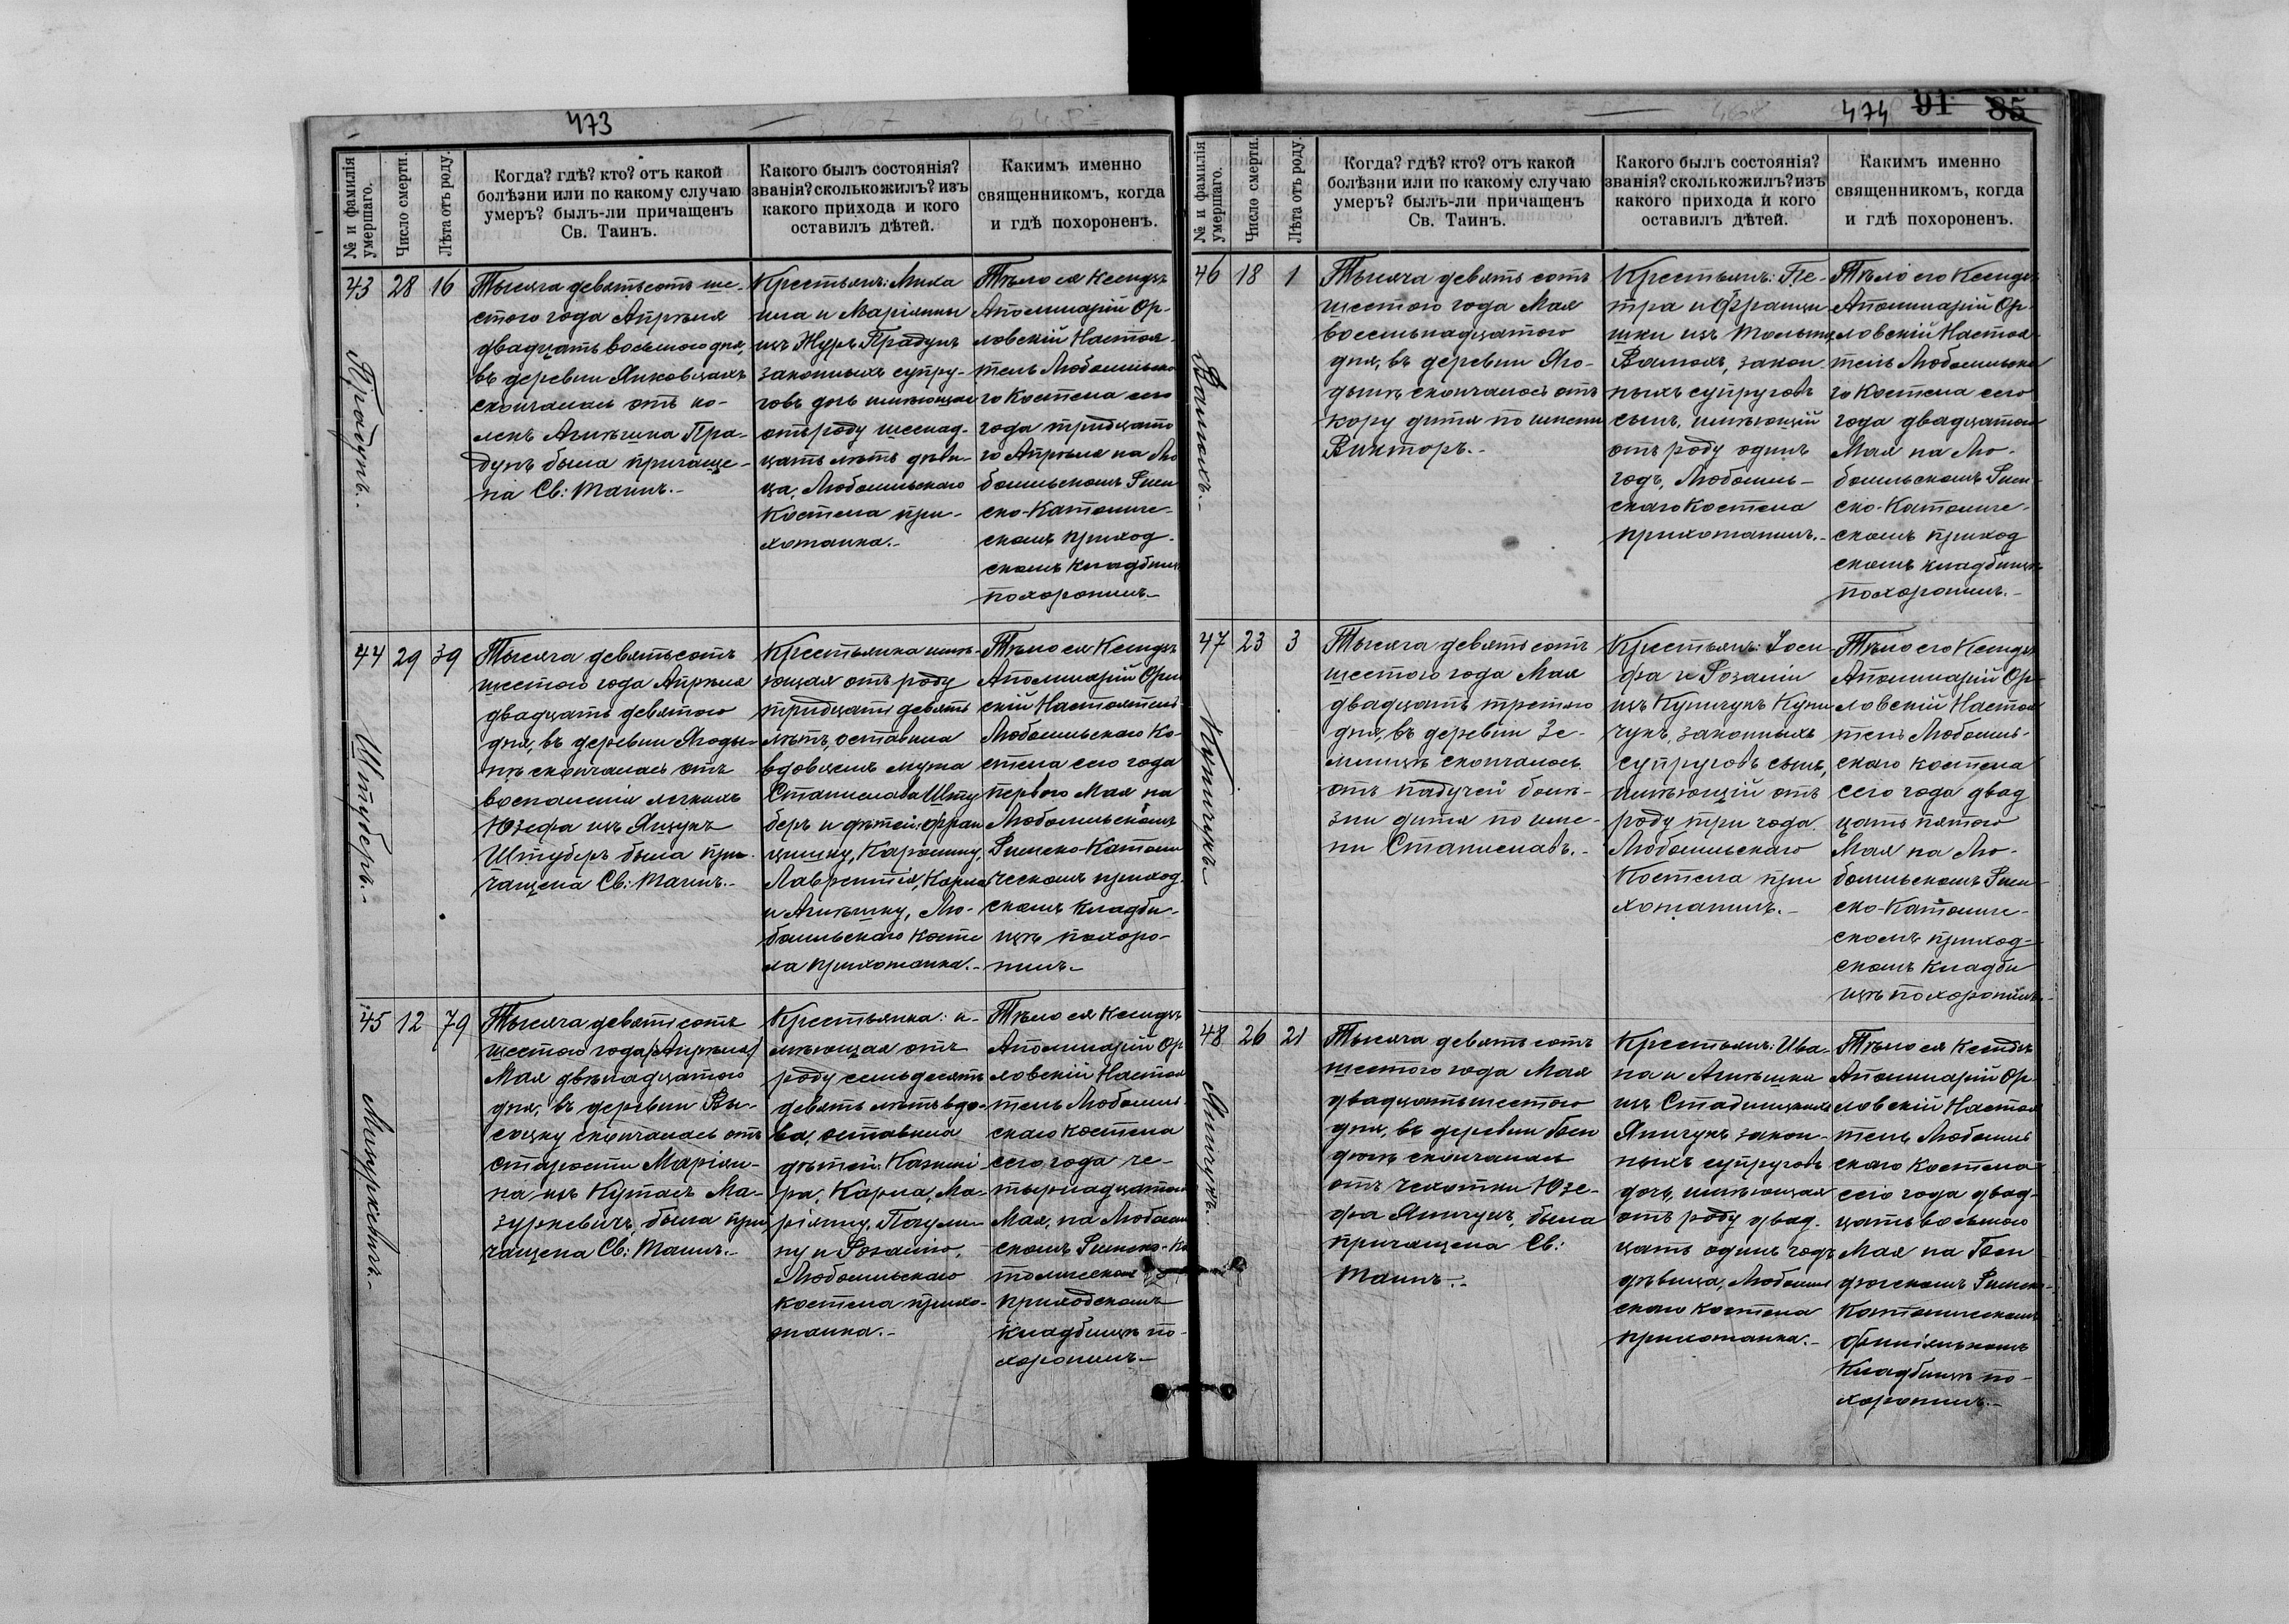 473
№ и фамилія умершаго.
Число смерти.
Лѣта отъ роду.
Когда? гдѣ? кто? отъ какой
болѣзни или по какому случаю
умеръ? былъ-ли причащенъ
Св. Таинъ.
Какого былъ состоянія?
званія? сколько жилъ? изъ
какого прихода и кого
оставилъ дѣтей.
Какимъ именно
священникомъ, когда
и гдѣ похороненъ.
43
Прадунъ.
28
16
Тысяча девятьсотъ ше-
стого года Апрѣля
двадцать восьмого дня,
въ деревни Янковцахъ
скончалась отъ ко-
лекъ Агнѣшка Пра-
дунъ была причаще-
на Св: Таинъ.-
Крестьянъ: Миха
ила и Маріянны
изъ Журъ Прадунъ
законныхъ супру-
говъ дочь имѣющая
отъ роду шеснад-
цать лѣтъ дѣви-
ца, Любомльскаго
Костела при-
хожанка.-
Тѣло ея Ксендзъ
Аполинарій Ор-
ловскій Настоя-
тель Любомльска
го Костела сего
года тридцато
го Апрѣля на Лю
бомльскомъ Рим
ско-Католиче-
скомъ приход-
скомъ кладбищѣ
похоронилъ.-
44
Штуберъ.-
29
39
Тысяча девятьсотъ
шестого года Апрѣля
двадцать девятого
дня, въ деревни Ягоды-
нѣ скончалась отъ
воспаленія легкихъ
Юзефа изъ Яцукъ
Штуберъ была при-
чащена Св: Таинъ.-
Крестьянка имѣ-
ющая отъ роду
тридцать девять
лѣтъ, оставила
вдовѣлія мужа
Станислава Шту
беръ и дѣтей: Фран
цишку, Каролину,
Лаврентія, Кароля
и Агнѣшку, Лю-
бомльскаго Косте
ла прихожанка.-
Тѣло ея Ксендзъ
Аполинарій Орлов
скій Настоятель
Любомльскаго Ко-
стела сего года
перваго Мая на
Любомльскомъ
Римско-Католи
ческомъ приход-
скомъ кладби-
щѣ похоро-
нилъ.-
45
Мазуркевичъ.-
12
79
Тысяча девятьсотъ
шестого года (Апрѣля)
Мая двѣнадцатого
дня, въ деревни Вы-
соцку скончалась отъ
старости Маріян-
на изъ Кутасъ Ма-
зуркевичъ, была при
чащена Св: Таинъ.-
Крестьянка: и-
мѣющая отъ
роду семьдесятъ
девять лѣтъ вдо-
ва, оставила
дѣтей: Казимі-
ра, Карла, Ма-
ріянну, Паули-
ну и Розалію,
Любомльскаго
костела прихо-
жанка.-
Тѣло ея Ксендзъ
Аполинарій Ор
ловскій Настоя
тель Любомль-
скаго костела
сего года че-
тырнадцатого
Мая, на Любомль
скомъ Римско-Ка
толическомъ
приходскомъ
кладбищѣ по-
хоронилъ.-
474 91 85
№ и фамилія умершаго.
Число смерти.
Лѣта отъ роду.
Когда? гдѣ? кто? отъ какой
болѣзни или по какому случаю
умеръ? былъ-ли причащенъ
Св. Таинъ.
Какого былъ состоянія?
званія? сколько жилъ? изъ
какого прихода и кого
оставилъ дѣтей.
Какимъ именно
священникомъ, когда
и гдѣ похороненъ.
46
18
1
Тысяча девятьсотъ
шестого года Мая
восемьнадцатого
дня, въ деревни Яго-
дынѣ скончалось отъ
кору дитя по имени
Викторъ.-
Крестьянъ: Пе-
тра и Францы
шки изъ
закон-
ныхъ супруговъ
сынъ, имѣющій
отъ роду одинъ
годъ, Любомль-
скаго Костела
прихожанинъ.-
Тѣло его Ксендзъ
Аполинарій Ор-
ловскій Настоя
тель Любомльска
го Костела сего
года двадцатого
Мая на Лю-
бомльскомъ Рим
ско-Католиче-
скомъ приход
скомъ кладбищѣ
похоронилъ.-
47
Купичукъ
23
3
Тысяча девятьсотъ
шестого года Мая
двадцать третяго
дня, въ деревни Зе-
млицѣ скончалось
отъ падучей болѣ-
зни дитя по име-
ни Станиславъ.-
Крестьянъ: Іоси-
фа и Розаліи
изъ Купичукъ Купи
чукъ, законныхъ
супруговъ сынъ,
имѣющій отъ
роду три года.
Любомльскаго
Костела при
хожанинъ.-
Тѣло его Ксендзъ
Аполинарій Ор-
ловскій Настоя
тель Любомль-
скаго костела
сего года двад
цать пятого
Мая на Лю-
бомльскомъ Рим
ско-Католиче-
скомъ приход-
скомъ кладби
щѣ похоронилъ.-
48
Яничукъ.
26
21
Тысяча девятьсотъ
шестого года Мая
двадцать шестого
дня, въ деревни Бин
дюгѣ скончалась
отъ чахотки Юзе-
фа Яничукъ, была
причащена Св:
Таинъ.-
Крестьянъ: Ива-
на и Агнѣшки
изъ Стадницкихъ
Яничукъ закон-
ныхъ супруговъ
дочь, имѣющая
отъ роду двад-
цать одинъ годъ
дѣвица, Любомль
скаго костела
прихожанка.-
Тѣло ея Ксендзъ
Аполинарій Ор-
ловскій Настоя
тель Любомль
скаго костела
сего года двад-
цать восьмого
Мая на Бин
дюгскомъ Римско-
Католическомъ
филіяльномъ
Кладбищѣ по-
хоронилъ.-